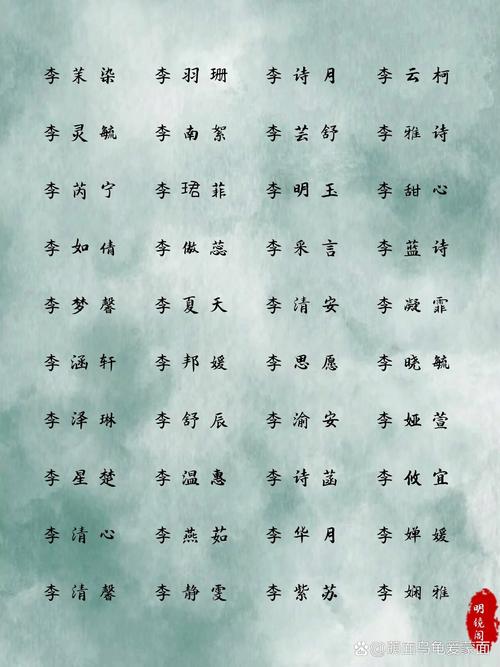 李茉染 李羽珊 李诗月 李云柯
李灵毓 李南絮 李芸舒 李雅诗
李芮宁 李珺菲 李明玉 李甜心
李如倩 李傲蕊 李采言 李蓝诗
李梦馨 李夏天 李清安 李凝霏
李涵轩 李邦媛 李思愿 李晓毓
李泽琳 李舒辰 李渝安 李娅萱
李星楚 李温惠 李诗菡 李攸宜
李清心 李燕茹 李华月 李婵媛
李清馨 李静雯 李紫苏 李娴雅
明镜阁